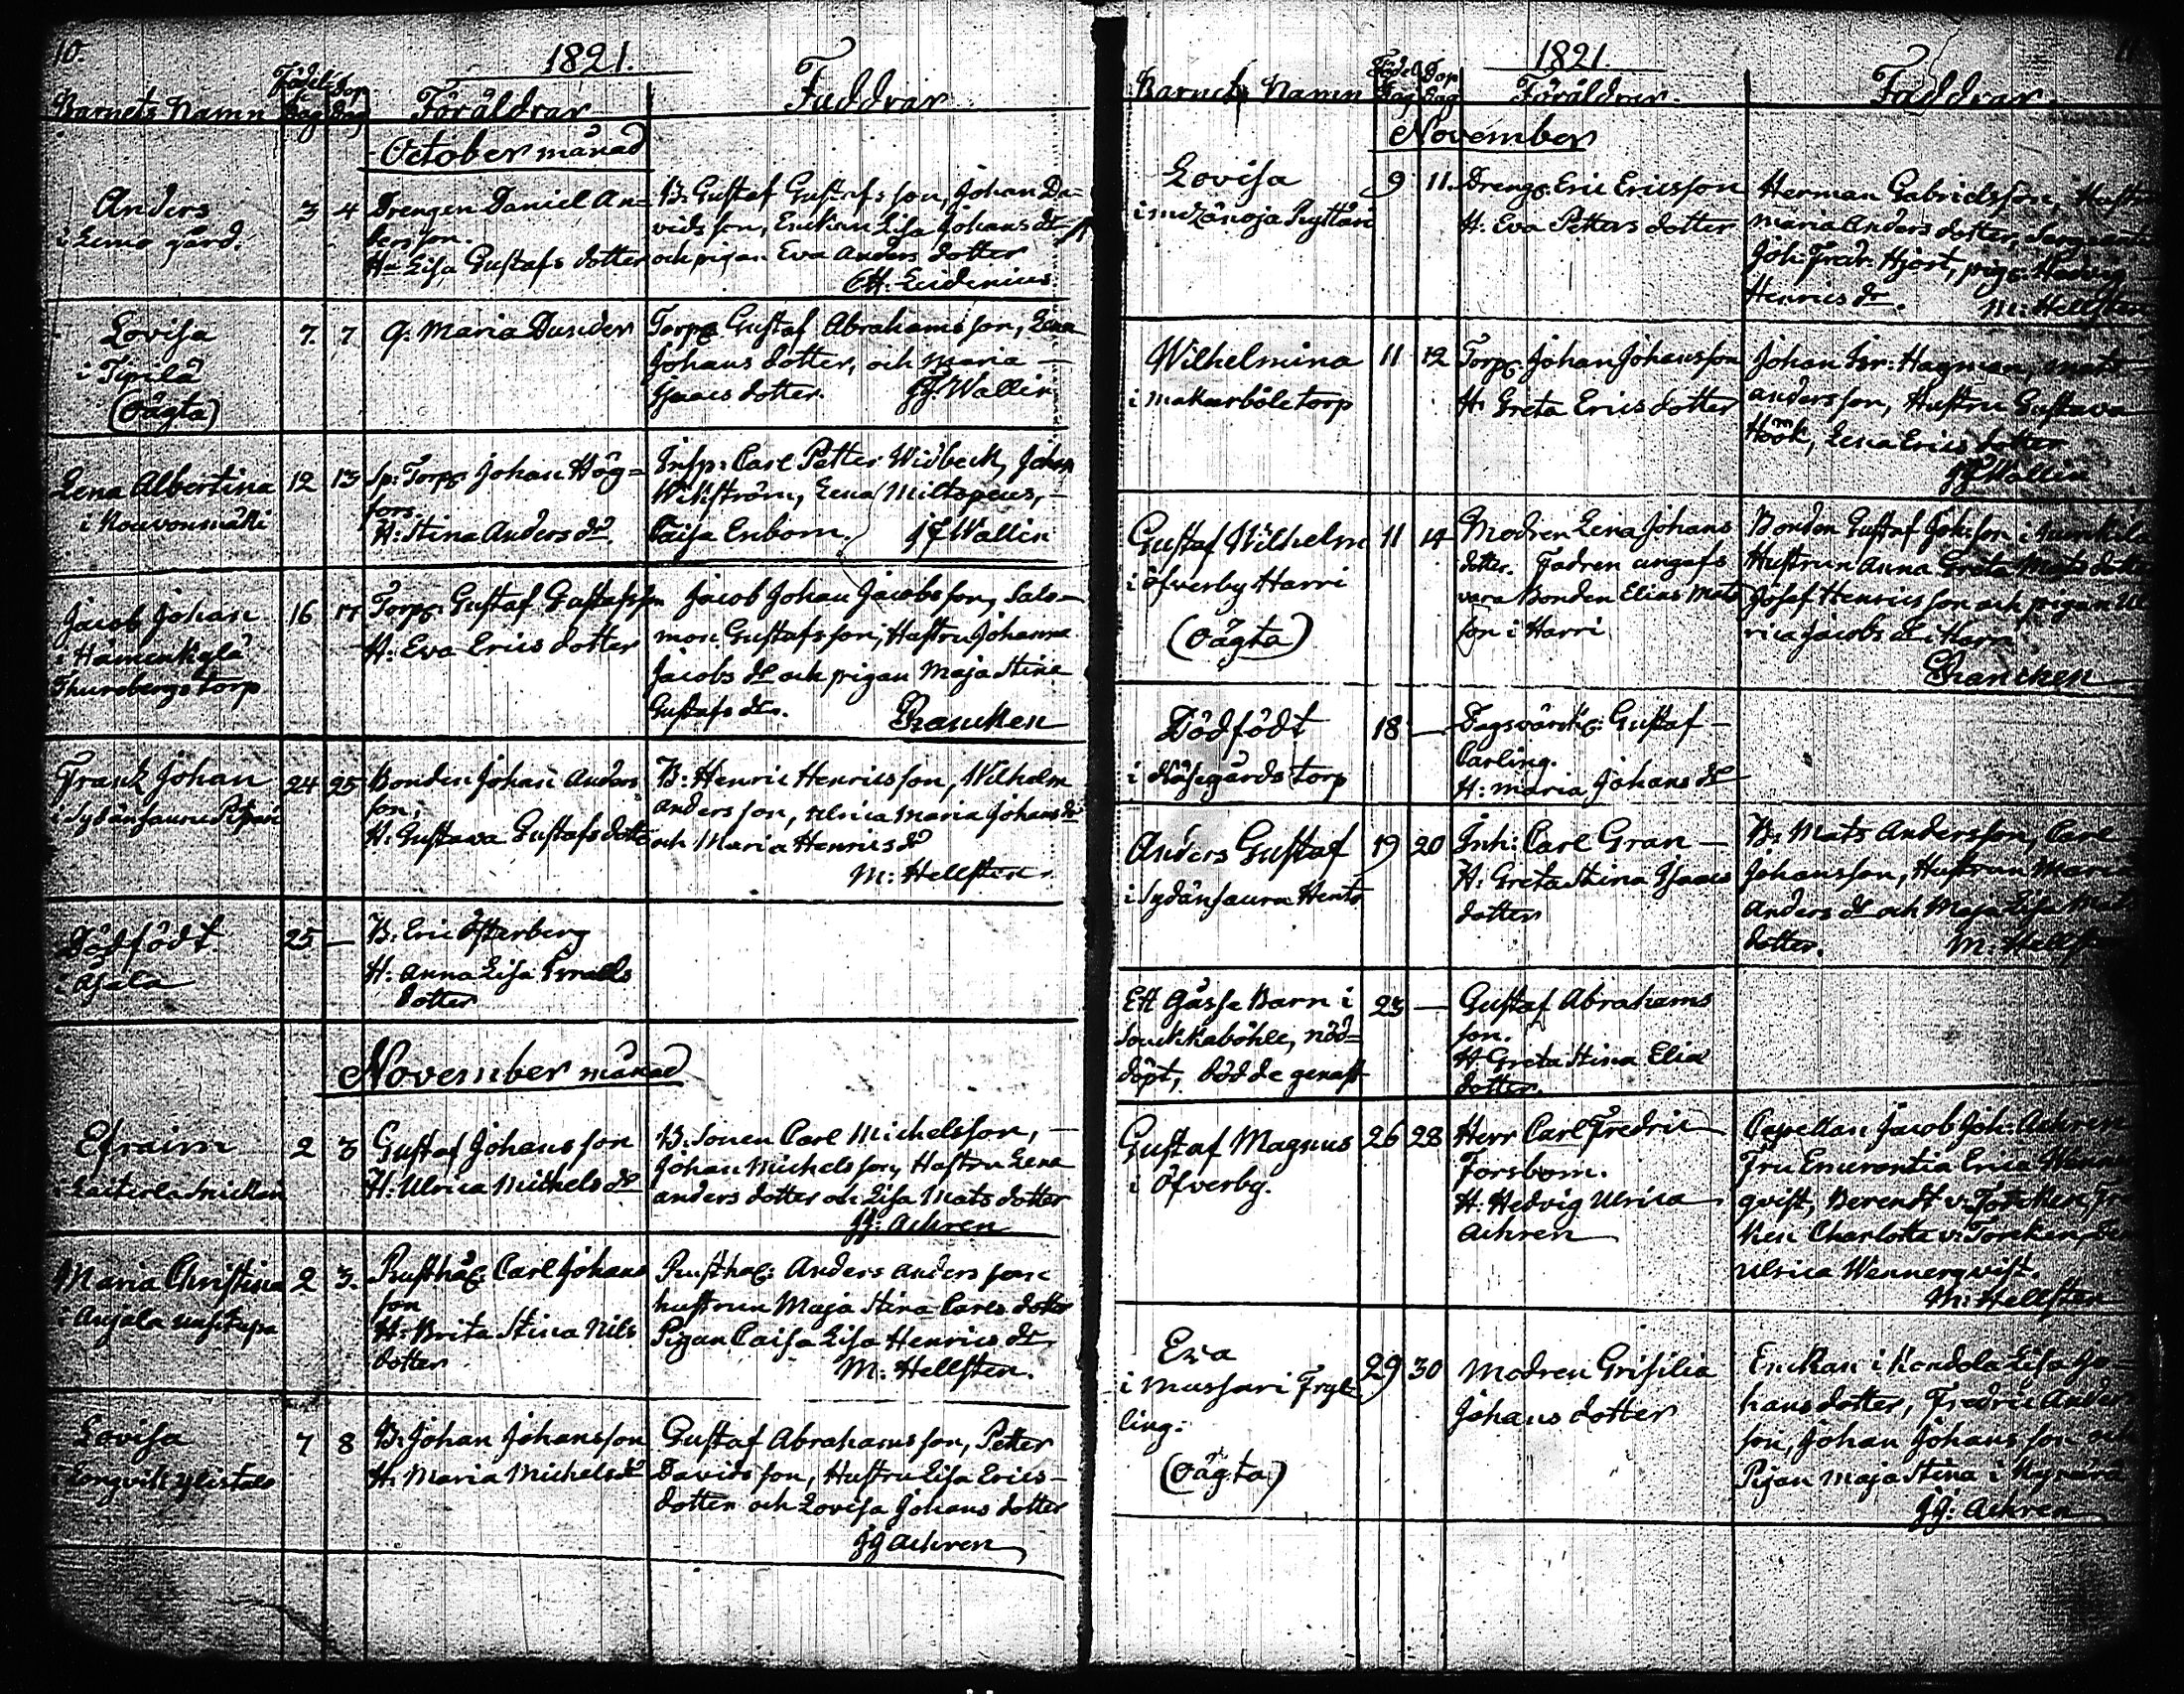 10.
1821.
Barnets Namn
Födels Dag
Dop Dag
Föräldrar
Faddrar
October månad
Anders
i Limo gård.
3
4
Drengen Daniel An=
dersson.
Hu Lisa Gustafs dotter
B. Gustaf Gustafsson, Johan Da=
vids son, Enckan Lisa Johans dr
och pigan Eva Anders dotter
Lovisa
i Tpilä
(oägta)
7.
7
Q. Maria
Torp. Gustaf Abrahamsson, Lena
Johans dotter, och Maria —
Isaacs dotter. JJ. Wallin
Lena Albertina
i
12
13
Sp. Torp. Johan Hög=
fors.
H: Stina Anders dr.
Insp: Carl Petter Widbeck, Johan
Wikström, Lena Miltopeus, —
Caisa Enbom. JJ Wallin
Jacob Johan
i
torp
16
17
Torp. Gustaf Gustafsson
H: Eva Erics dotter
Jacob Johan Jacobsson, Salo=
mon Gustafsson, Hustru Johanna
Jacobs dr och pigan Maja Stina
Gustafs dr. Prancken
Frank Johan
24
25
Bonden Johan Anders
son,
H: Gustava Gustafs dotter
B: Henric Henricsson, Wilhelm
Andersson, Ulrica Maria Johans dr
och Maria Henrics dr
M: Hellsten.
Dödfödt
25
—
B: Eric Österberg
H: Anna Lisa
dotter
November månad
Efraim
2
3
Gustaf Johansson
H: Ulrica Michels dr
B. Sonen Carl Michelsson, —
Johan Michelsson, Hustru Lena
Anders dotter och Lisa Mats dotter
JJ: Achren
Maria Christina
i Anjala
2
3.
Rusthål: Carl Johans
son
H: Brita Stina Nils
dotter
Rusthål: Anders Andersson
hustrun Maja Stina Carls dotter
Pigan Caisa Lisa Henrics dr
M: Hellsten.
Lovisa
7
8
B: Johan Johansson
H: Maria Michels dr
Gustaf Abrahamsson, Petter
Davidsson, Hustru Lisa Erics —
dotter och Lovisa Johans dotter
JJ Achren
1821.
Barnets Namn
Födels Dag
Dop Dag
Föräldrar.
Faddrar.
November
Lovisa
i
9
11.
Dreng. Eric Ericsson
H. Eva Petters dotter
Herman Gabrielsson, Hustru
Maria Anders dotter,
Joh: Fredr: Hjort, pig. Hedvig
Henrics dr. M: Hellsten
Wilhelmina
i Makarböle torp
11
12
Torp. Johan Johansson
H: Greta Erics dotter
Johan Isr: Hagman, Mats
Andersson, Hustru Gustava
Höök, Lena Erics dotter
JJ Wallin
Gustaf Wilhelm
i Öfverby Harri
(oägta)
11
14
Modren Lena Johans
dotter. Fadren angafs
vara Bonden Elias Mats
son i Harri
Bonden Gustaf
Hustrun Anna Greta Mats dotter
Josef Henricsson och pigan Ul
rica Jacobs dr i Harri
Prancken
Dödfödt
i torp
18
—
Dagsvärsk: Gustaf —
Carling.
H: Maria Johans dr
Anders Gustaf
i
19
20
Inh: Carl Gran —
H: Greta Stina Isaacs
dotter
B: Mats Andersson, Carl
Johansson, Hustrun Maria
Anders dr och Maja Lisa Mats
dotter. M: Hellsten
Ett gåsse Barn i
Souckkaböhle, nöd=
döpt, dödde genast
23
—
Gustaf Abrahams
son.
H Greta Stina Elia
dotter.
Gustaf Magnus
i Öfverby.
26
28
Herr Carl Fredric
Forsbom.
H: Hedvig Ulrica
Achren
Capellan Jacob Joh: Achren
Fru Emerentia Erica Wenner
qvist, Berendt v. Torcken, Frö
ken Charlotta v: Torcken,
Ulrica Wennerqvist.
M: Hellsten
Eva
i Fryt=
ling.
(oägta)
29
30
Modren Grisilia
Johans dotter
Enckan i Kondola Lisa Jo=
hans dotter, Fredric Anders
son, Johan Johansson och
Pigan Maja Stina i
JJ: Achren